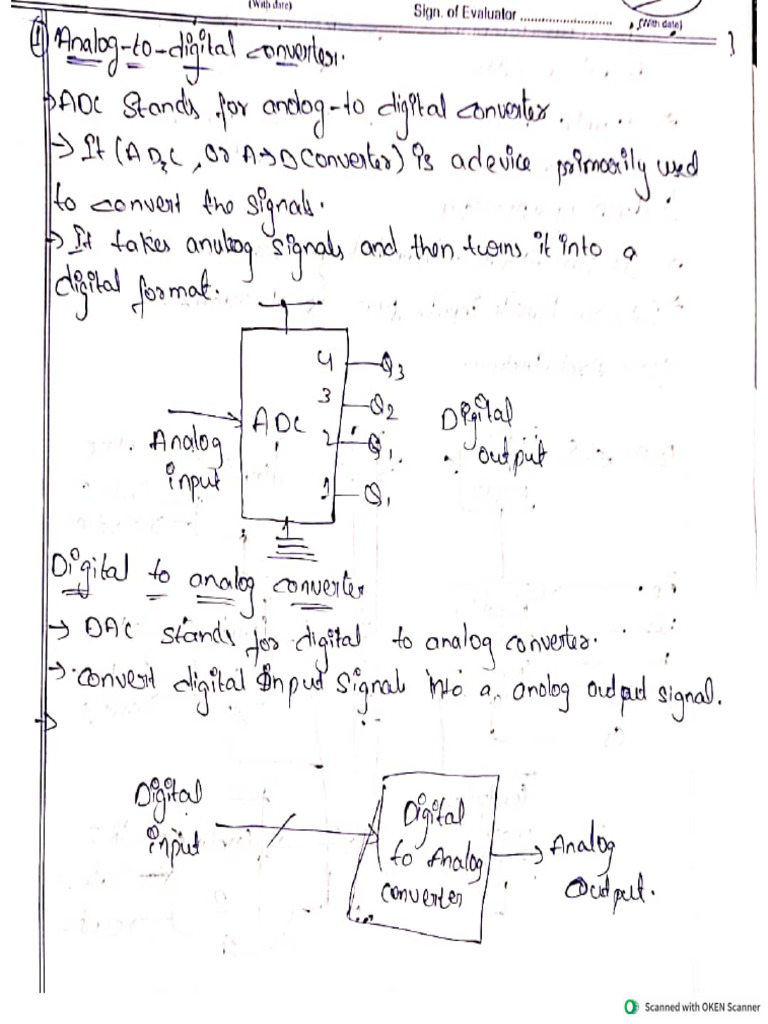 (With date)
Sign. of Evaluator ..........................
(With date)
1
① Analog-to-digital converter.
→ ADC stands for analog-to digital converter.
→ It (ADC, or A→D Converter) is a device primarily used
to convert the signals.
→ It takes analog signals and then turns it into a
digital format.
4 Q3
3 Q2
ADC
Digital
Analog
2 Q1
output
input
1 Q1
Digital to analog converter
→ DAC stands for digital to analog converter.
→ convert digital Input signal into a analog output signal.
→
Digital
input
Digital
to Analog
converter
Analog
Output.
Scanned with OKEN Scanner